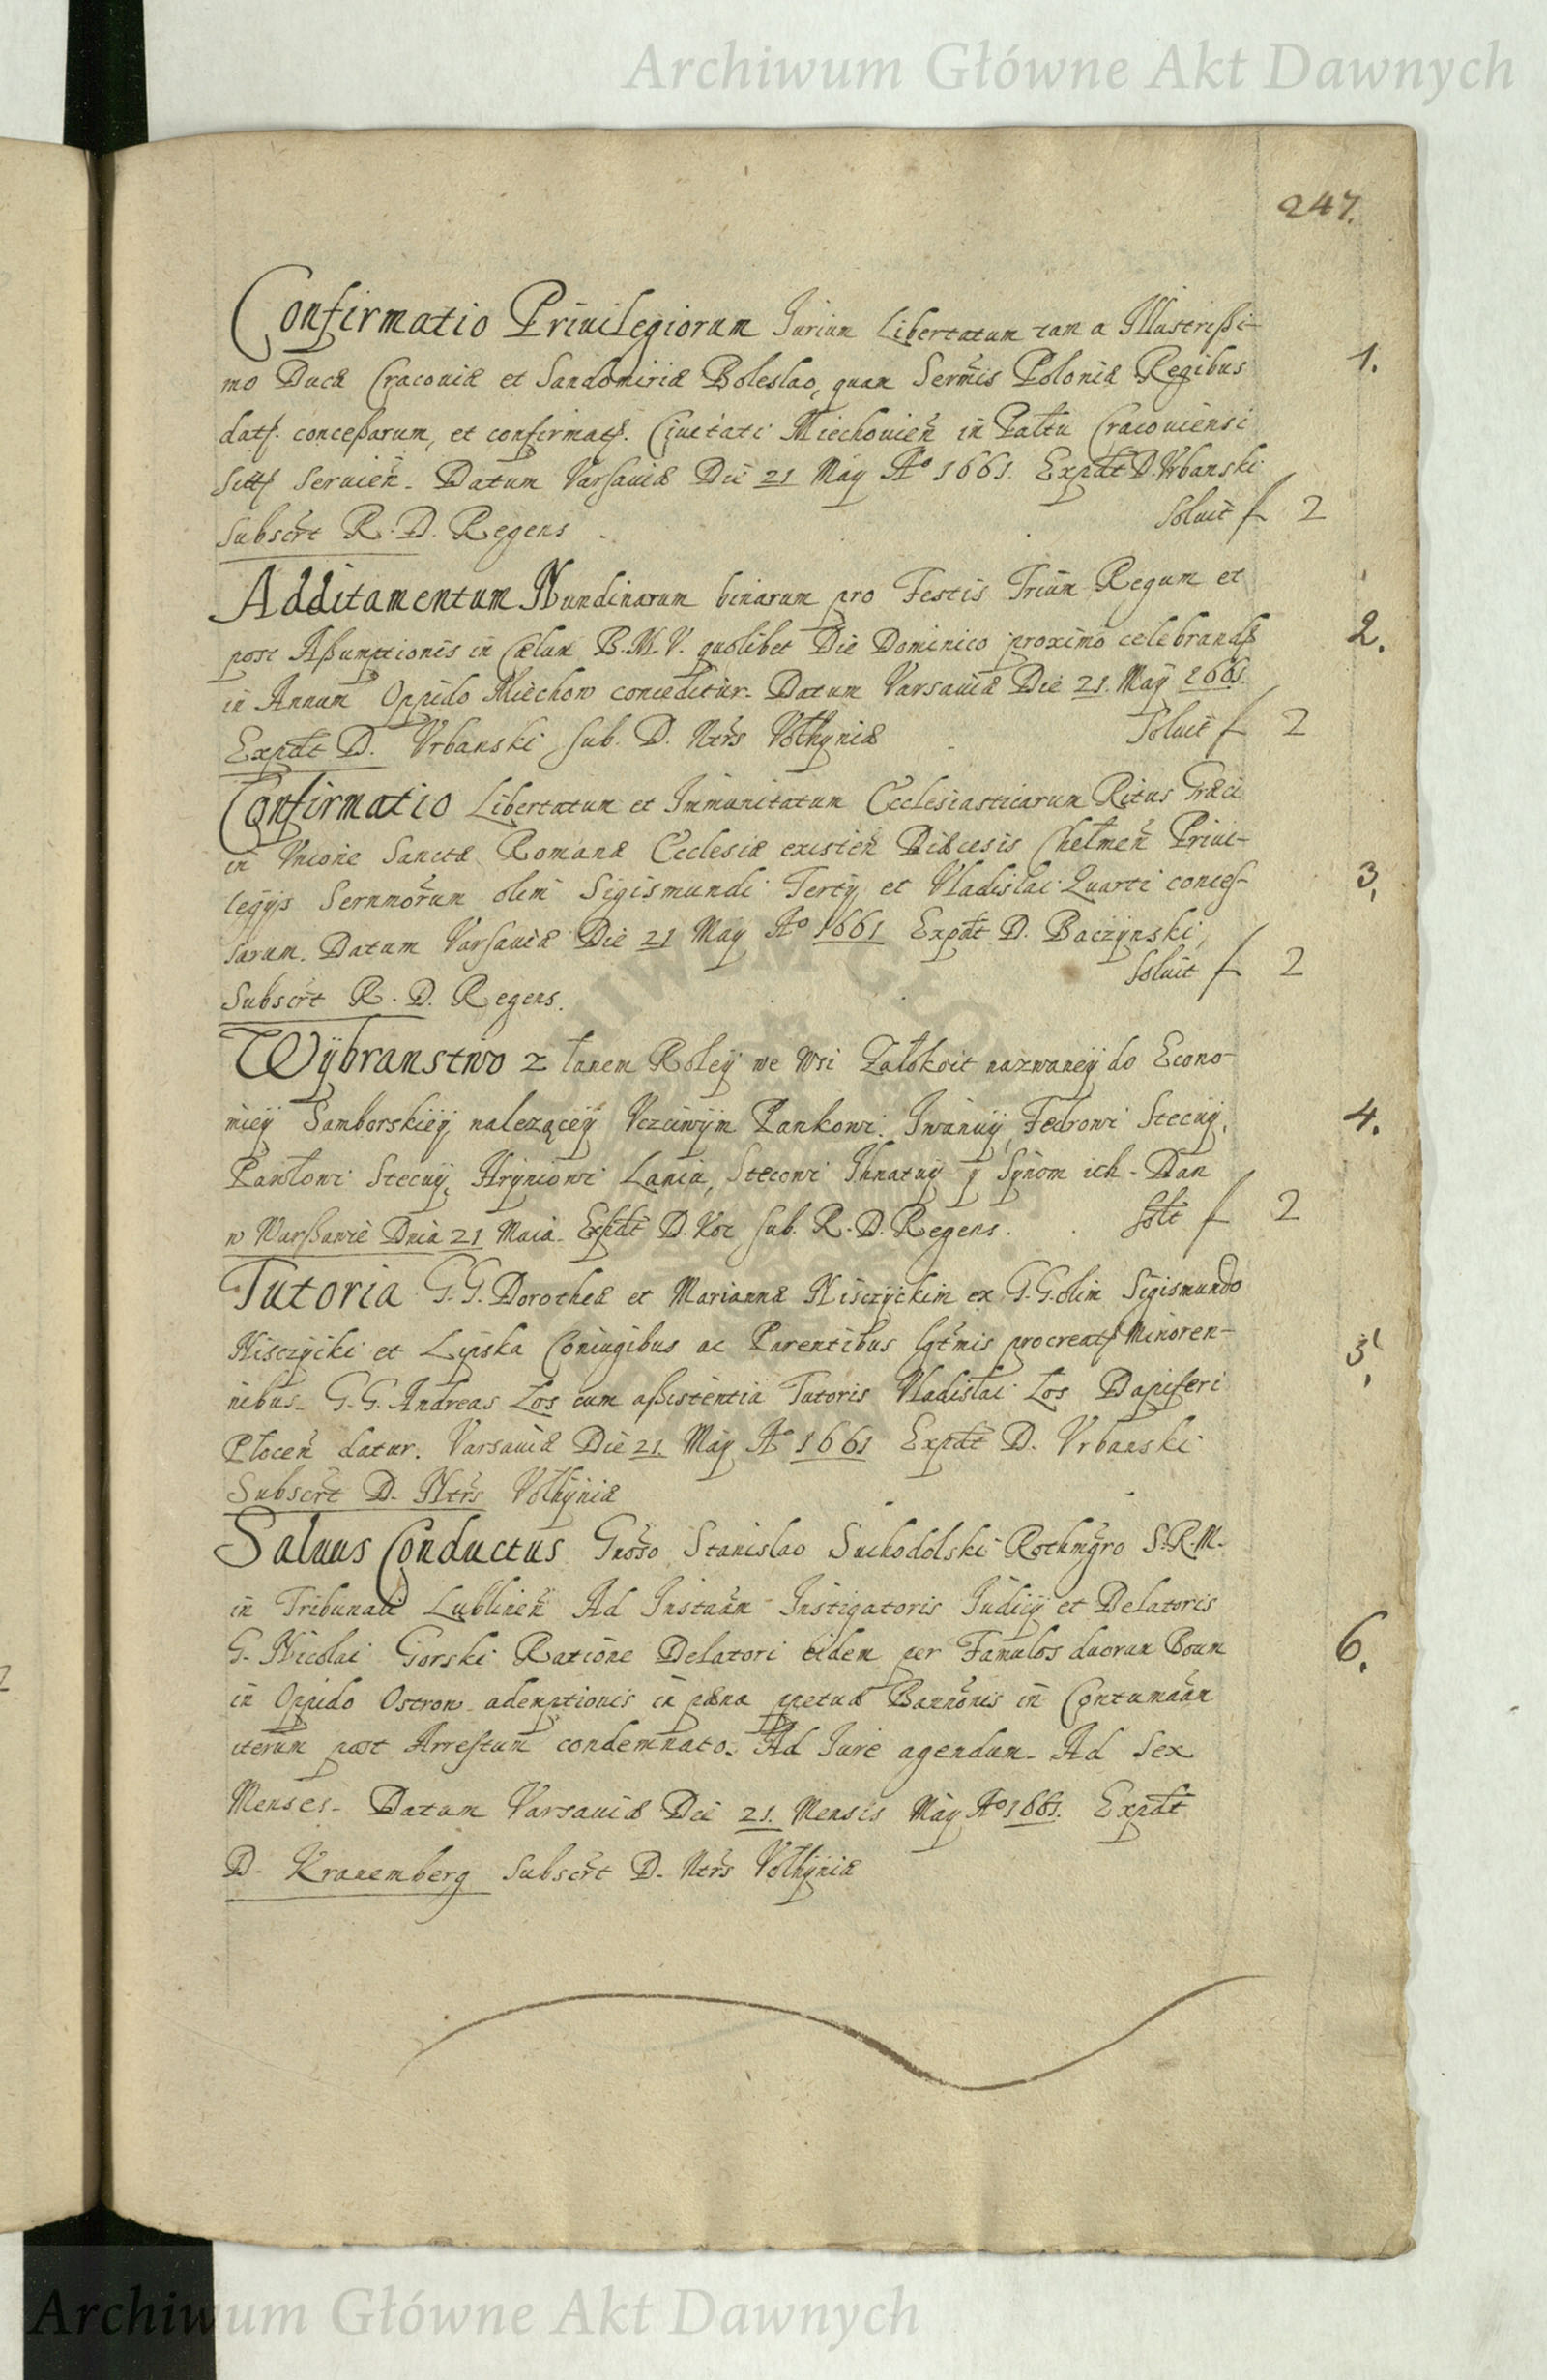 Archiwum Główne Akt Dawnych
247.
Confirmatio Priuilegiorum Iurium Libertatum tam a Illustrißi-
mo Duce Cracouiæ et Sandomiriæ Boleslao, quam Sermis Poloniæ Regibus
1.
dat. conceßarum, et confirmat. Ciuitati Miechouien in Pałtu Cracouiensi
sitt seruien. Datum Varsauiæ Die 21 May Ao 1661. Expdt D. Vrbanski
Subscrt R. D. Regens
Soluit f 2
Additamentum Nundinarum binarum pro Festis Trium Regum et
post Aßumptionis in Cælum B.M.V. quolibet Die Dominico proximo celebrand
2.
in Annum Oppido Miechow conceditur. Datum Varsauiæ Die 21. May 1661.
Expdt D. Vrbanski sub. D. Ntrs Vołhyniæ
Soluit f 2
Confirmatio Libertatum et Immunitatum Ecclesiasticarum Ritus Græci
in Vnione Sanctæ Romanæ Ecclesiæ existen Diæcesis Chełmen Priui-
legijs Sernmorum olim Sigismundi Tertij et Vladislai Quarti conces-
3.
sarum. Datum Varsauiæ Die 21 May Ao 1661 Expdt D. Baczynski,
Subscrt R. D. Regens.
Soluit f 2
Wÿbranstwo z łanem Roleÿ we Wsi Załokoit nazwaneÿ do Econo-
mieÿ Samborskieÿ należąceÿ Vczciwÿm Pankowi Iwanuÿ, Fedrowi Stecuÿ,
4.
Pawłowi Stecuÿ, Hryniowi Laniu, Stecowi Ihnatuÿ ÿ Sÿnom ich. Dan
w Warßawie Dnia 21 Maia. Expdt D. Koc sub. R. D. Regens.
Solt f 2
Tutoria G.G. Dorotheæ et Mariannæ Nisczyckim ex G.G. olim Sigismundo
Nisczÿcki et Lipska Coniugibus ac Parentibus lgtmis procreat Minoren-
5.
nibus. G.G. Andreas Los cum aßistentia Tutoris Vladislai Los Dapiferi
Płocen datur. Varsauiæ Die 21. Maÿ Ao 1661 Expdt D. Vrbanski
Subscrt D. Ntrs Vołhyniæ
Saluus Conductus Gnoso Stanislao Suchodolski Rothmgro S.R.M.
in Tribunali Lublinen Ad Instaãn Instigatoris Iudicij et Delatoris
G. Nicolai Gorski Ratione Delatori eidem per Famulos duorum Boum
6.
in Oppido Ostrow ademptionis in pæna ppetuæ Bannonis in Contumaãm
iterum post Arrestum condemnato. Ad Iure agendum. Ad Sex
Menses. Datum Varsauiæ Die 21. Mensis May Ao 1661. Expdt
D. Kranemberg Subscrt D. Ntrs Vołhyniæ
Archiwum Główne Akt Dawnych